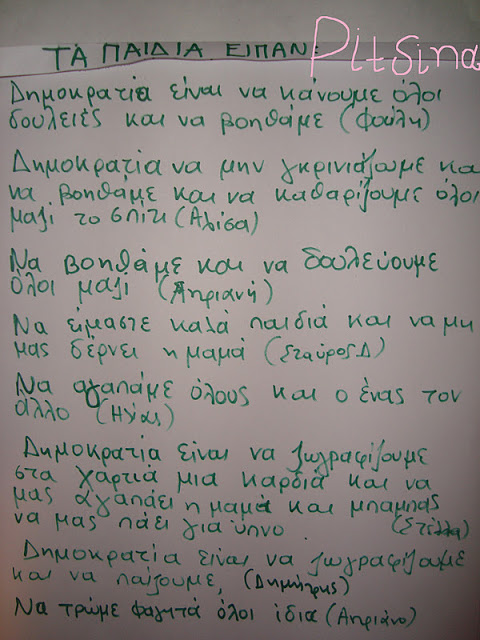 ΤΑ ΠΑΙΔΙΑ ΕΙΠΑΝ: Pitsina
Δημοκρατία είναι να κάνουμε όλοι
δουλειές και να βοηθάμε (Φούλη)
Δημοκρατία να μην γκρινιάζωμε και
να βοηθάμε και να καθαρίζουμε όλοι
μαζί το σπίτι (Αλίσα)
Να βοηθάμε και να δουλεύουμε
όλοι μαζί (Απριανή)
Να είμαστε καλά παιδιά και να μη
μας δέρνει η μαμά (Σταύρος Δ)
Να αγαπάμε όλους και ο ένας τον
άλλο (Ηλίας)
Δημοκρατία είναι να ζωγραφίζουμε
στα χαρτιά μια καρδιά και να
μας αγαπάει η μαμά και μπαμπάς
να μας πάει για ύπνο (Στέλλα)
Δημοκρατία είναι να ζωγραφίζουμε
και να παίζουμε, (Δημήτρης)
Να τρώμε φαγητά όλοι ίδια (Απριάνο)